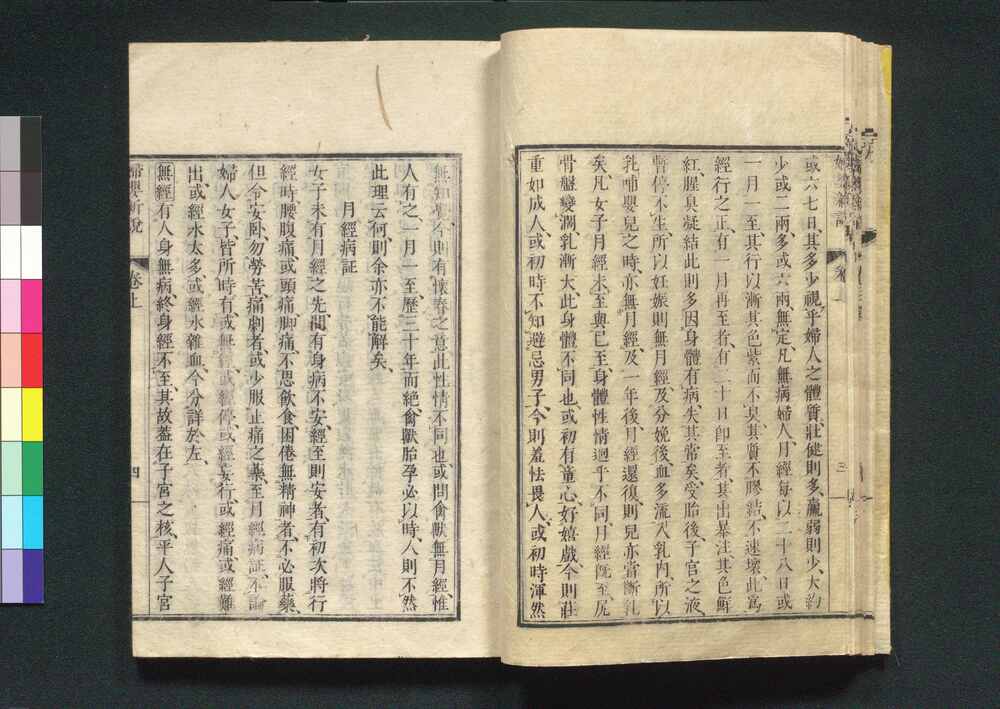 或六七日、其多少視乎婦人之體質、壯健則多、羸弱則少、大約
少或二兩、多或六兩無定、凡無病婦人、月經每以二十八日或
一月一至、其行以漸、其色紫而不臭、其質不膠結、不速壞、此爲
經行之正、有一月再至者、有二十日即至者、其出暴注、其色鮮
紅、腥臭凝結、此則多因身體有病、失其常矣、受胎後子宫之液、
暫停不生、所以妊娠則無月經、及分娩後、血多流入乳內、所以
乳哺嬰兒之時、亦無月經、及一年後、月經還復、則兒亦當斷乳
矣、凡女子月經未至與已至、身體性情迥乎不同、月經旣至、尻
骨盤變濶、乳漸大、此身體不同也、或初有童心、好嬉戲、今則莊
重如成人、或初時不知避忌男子、今則羞怯畏人、或初時渾然
無知覺、今則有懷春之意、此性情不同也、或問禽獸無月經、惟
人有之、一月一至、歷三十年而絶、禽獸胎孕必以時、人則不然
此理云何、則余亦不能解矣、
月經病証
女子未有月經之先、間有身病不安、經至則安者、有初次將行
經時、腰腹痛、或頭痛脚痛、不思飲食、困倦無精神者、不必服藥、
但令安卧、勿勞苦、痛劇者、或少服止痛之藥、至月經病証、不論
婦人女子、皆所時有、或無經、或經停、或經妄行、或經痛、或經難
出、或經水太多、或經水雜血、今分詳於左、
無經 有人身無病、終身經不至、其故蓋在子宫之核、平人子宫
婦嬰新說
卷上
四